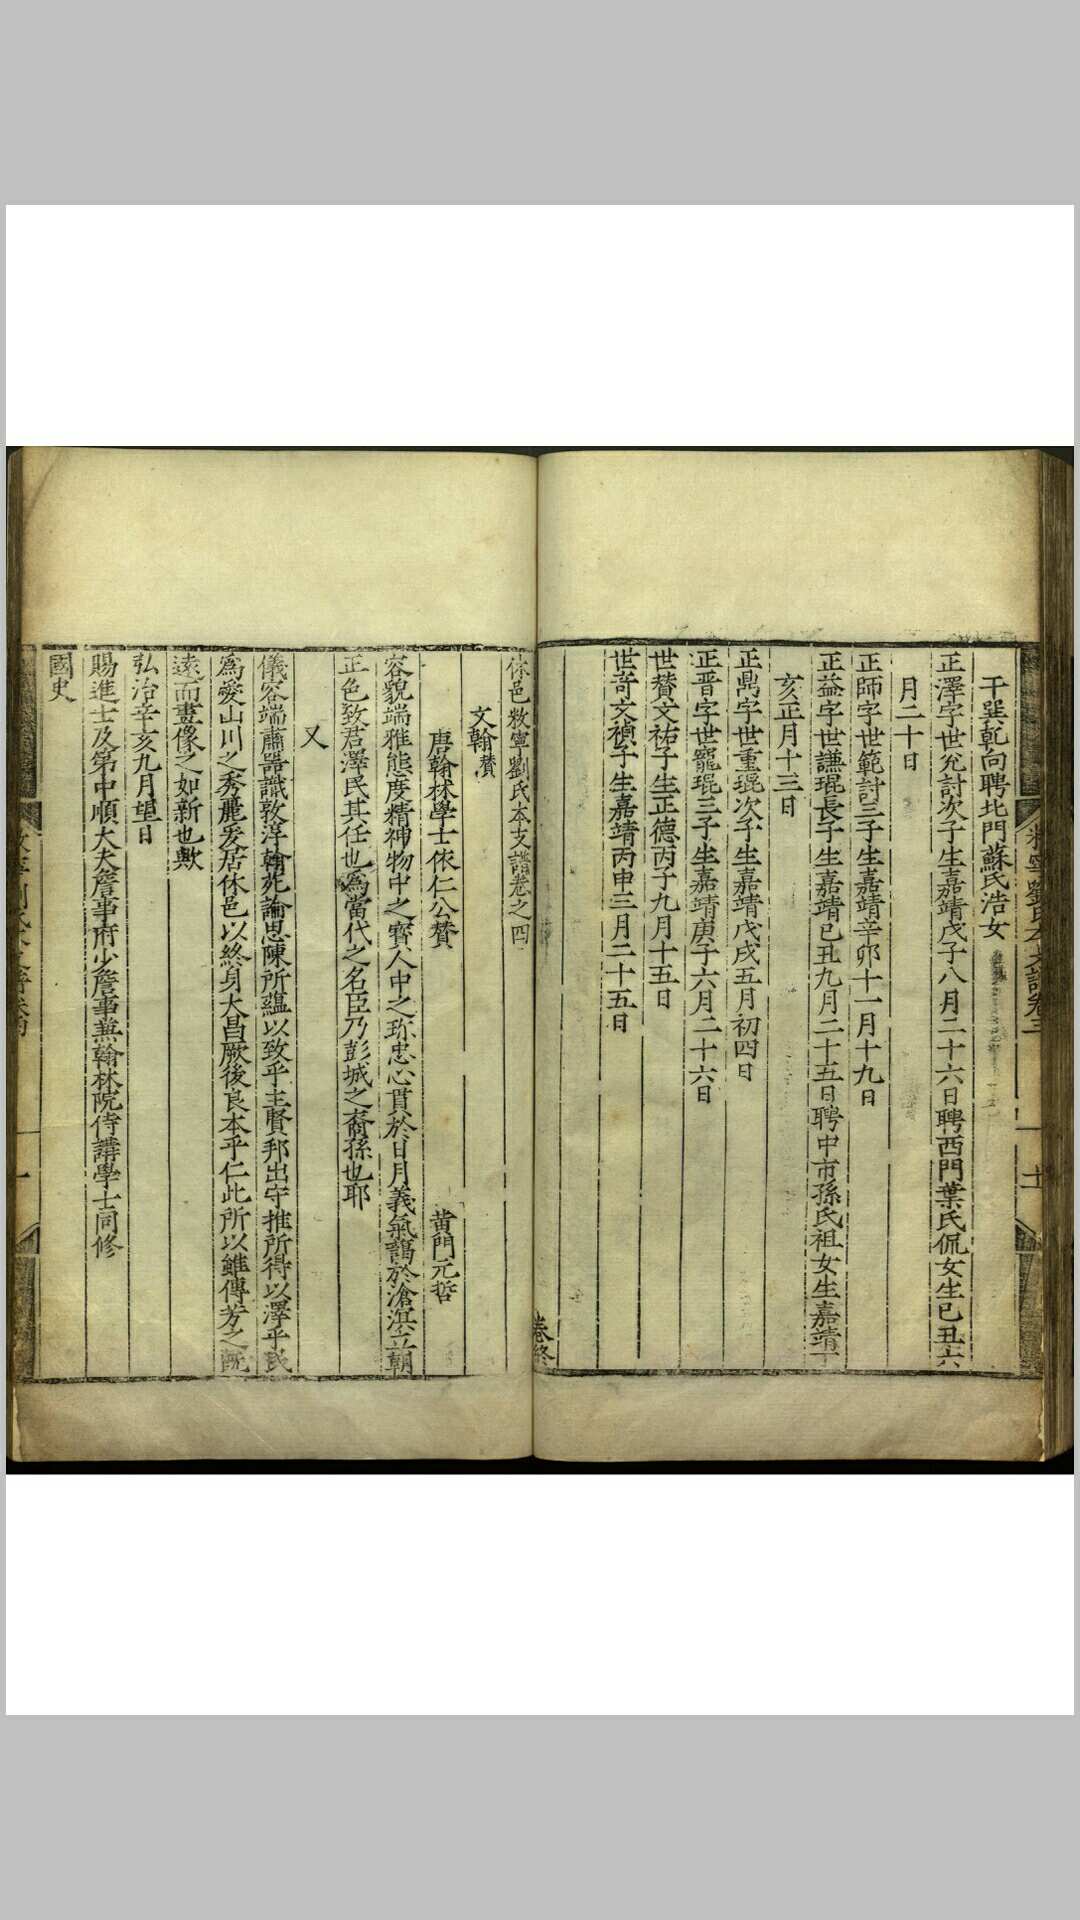 干巽乾向聘北門蘇氏浩女
正澤字世兊討次子生嘉靖戊子八月二十六日聘西門葉氏侃女生巳丑六
月二十日
正師字世範討三子生嘉靖辛卯十一月十九日
正益字世謙琨長子生嘉靖巳丑九月二十五日聘中市孫氏祖女生嘉靖丁
亥正月十三日
正鼎字世重琨次子生嘉靖戊戌五月初四日
正晋字世寵琨三子生嘉靖庚子六月二十六日
世賛文祐子生正德丙子九月十五日
世竒文禎子生嘉靖丙申三月二十五日
卷終
休邑敉寧劉氏本支譜卷之四
文翰賛
唐翰林學士依仁公賛 黄門元哲
容貌端雅態度精神物中之寶人中之珎忠心貫於日月義氣藹於滄溟立朝
正色致君澤民其任也為當代之名臣乃彭城之裔孫也耶
又
儀容端肅器識敦淳翰苑論思陳所蘊以致乎主賢邦出守推所得以澤乎民
為愛山川之秀麗爰居休邑以終身大昌厥後良本乎仁此所以雖傳芳之旣
遠而畫像之如新也歟
弘治辛亥九月望日
賜進士及第中順大夫詹事府少詹事兼翰林院侍講學士同修
國史